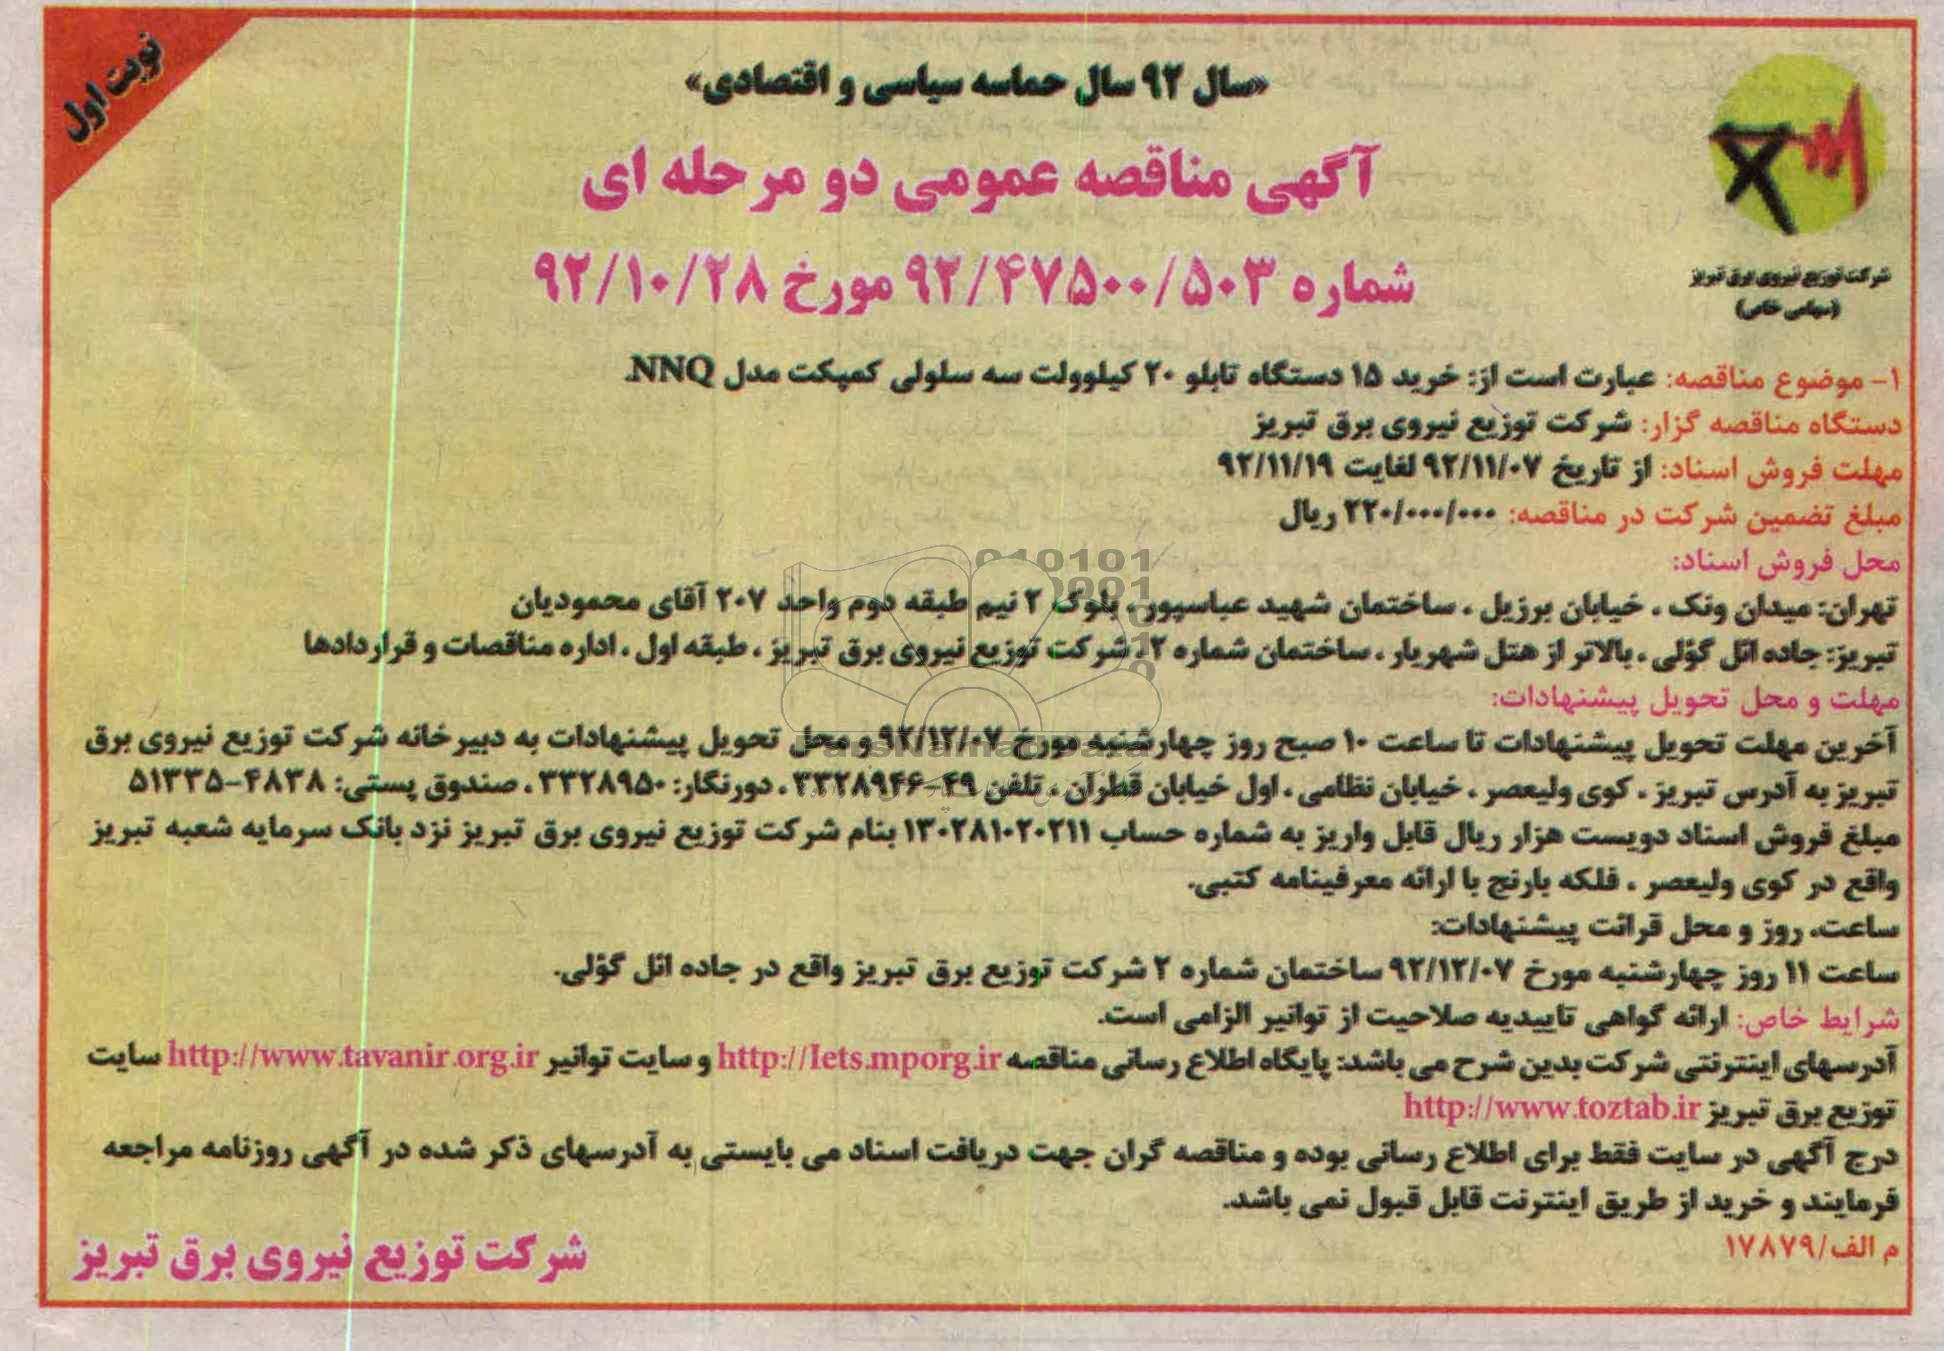 نوبت اول
«سال ۹۲ سال حماسه سیاسی و اقتصادی»
آگهی مناقصه عمومی دو مرحله ای
شماره ۹۲/۴۷۵۰۰/۵۰۳ مورخ ۹۲/۱۰/۲۸
شرکت توزیع نیروی برق تبریز
(سهامی خاص)
۱- موضوع مناقصه: عبارت است از: خرید ۱۵ دستگاه تابلو ۲۰ کیلوولت سه سلولی کمپکت مدل NNQ.
دستگاه مناقصه گزار: شرکت توزیع نیروی برق تبریز
مهلت فروش اسناد: از تاریخ ۹۲/۱۱/۰۷ لغایت ۹۲/۱۱/۱۹
مبلغ تضمین شرکت در مناقصه: ۲۲۰/۰۰۰/۰۰۰ ریال
محل فروش اسناد:
تهران: میدان ونک ، خیابان برزیل ، ساختمان شهید عباسپور ، بلوک ۲ نیم طبقه دوم واحد ۲۰۷ آقای محمودیان
تبریز: جاده ائل گؤلی ، بالاتر از هتل شهریار ، ساختمان شماره ۲، شرکت توزیع نیروی برق تبریز ، طبقه اول ، اداره مناقصات و قراردادها
مهلت و محل تحویل پیشنهادات:
آخرین مهلت تحویل پیشنهادات تا ساعت ۱۰ صبح روز چهارشنبه مورخ ۹۲/۱۲/۰۷ و محل تحویل پیشنهادات به دبیرخانه شرکت توزیع نیروی برق
تبریز به آدرس تبریز ، کوی ولیعصر ، خیابان نظامی ، اول خیابان قطران ، تلفن ۴۹-۳۳۲۸۹۴۶ ، دورنگار: ۳۳۲۸۹۵۰ ، صندوق پستی: ۴۸۳۸-۵۱۳۳۵
مبلغ فروش اسناد دویست هزار ریال قابل واریز به شماره حساب ۱۳۰۲۸۱۰۲۰۲۱۱ بنام شرکت توزیع نیروی برق تبریز نزد بانک سرمایه شعبه تبریز
واقع در کوی ولیعصر ، فلکه بارنج با ارائه معرفینامه کتبی.
ساعت، روز و محل قرائت پیشنهادات:
ساعت ۱۱ روز چهارشنبه مورخ ۹۲/۱۲/۰۷ ساختمان شماره ۲ شرکت توزیع برق تبریز واقع در جاده ائل گؤلی.
شرایط خاص: ارائه گواهی تاییدیه صلاحیت از توانیر الزامی است.
آدرسهای اینترنتی شرکت بدین شرح می باشد: پایگاه اطلاع رسانی مناقصه http://Iets.mporg.ir و سایت توانیر http://www.tavanir.org.ir سایت
توزیع برق تبریز http://www.toztab.ir
درج آگهی در سایت فقط برای اطلاع رسانی بوده و مناقصه گران جهت دریافت اسناد می بایستی به آدرسهای ذکر شده در آگهی روزنامه مراجعه
فرمایند و خرید از طریق اینترنت قابل قبول نمی باشد.
م الف/۱۷۸۷۹
شرکت توزیع نیروی برق تبریز